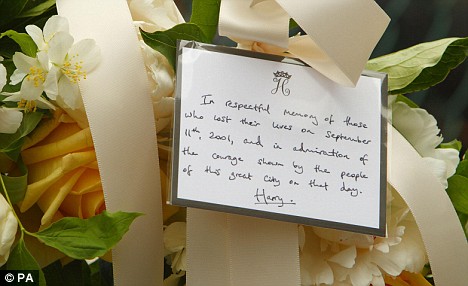 H
In respectful memory of those
who lost their lives on September
11th, 2001, and in admiration of
the courage shown by the people
of this great City on that day.
Harry.
© PA